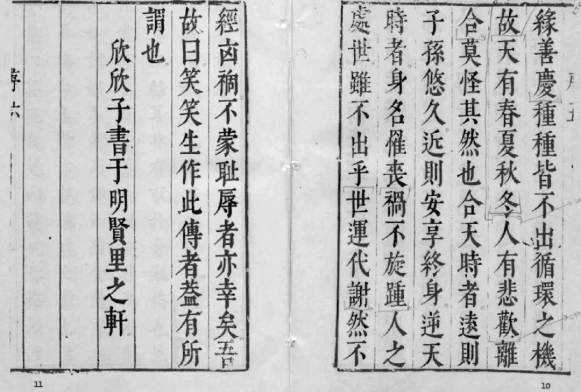 緣善慶種種皆不出循環之機
故天有春夏秋冬人有悲歡離
合莫怪其然也合天時者遠則
子孫悠久近則安享終身逆天
時者身名罹喪禍不旋踵人之
處世雖不出乎世運代謝然不
經凶禍不蒙耻辱者亦幸矣吾
故曰笑笑生作此傳者葢有所
謂也
欣欣子書于明賢里之軒
序六
11
10